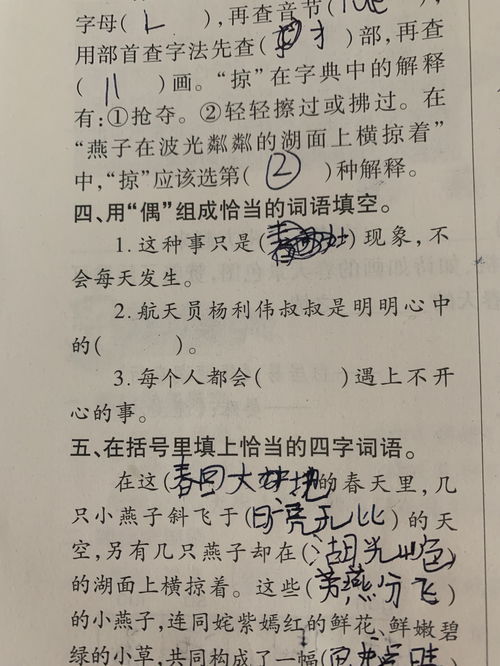 字母( L ),再查音节(
用部首查字法先查( 扌 )部,再查
( 11 )画。“掠”在字典中的解释
有:①抢夺。②轻轻擦过或拂过。在
“燕子在波光粼粼的湖面上横掠着”
中,“掠”应该选第( ② )种解释。
四、用“偶”组成恰当的词语填空。
1. 这种事只是( )现象,不
会每天发生。
2. 航天员杨利伟叔叔是明明心中
的( )。
3. 每个人都会( )遇上不开
心的事。
五、在括号里填上恰当的四字词语。
在这( 春回大地 )的春天里,几
只小燕子斜飞于( 日亮无比 )的天
空,另有几只燕子却在( 湖光山色 )
的湖面上横掠着。这些( 劳燕分飞 )
的小燕子,连同姹紫嫣红的鲜花、鲜嫩碧
绿的小草,共同构成了一幅(